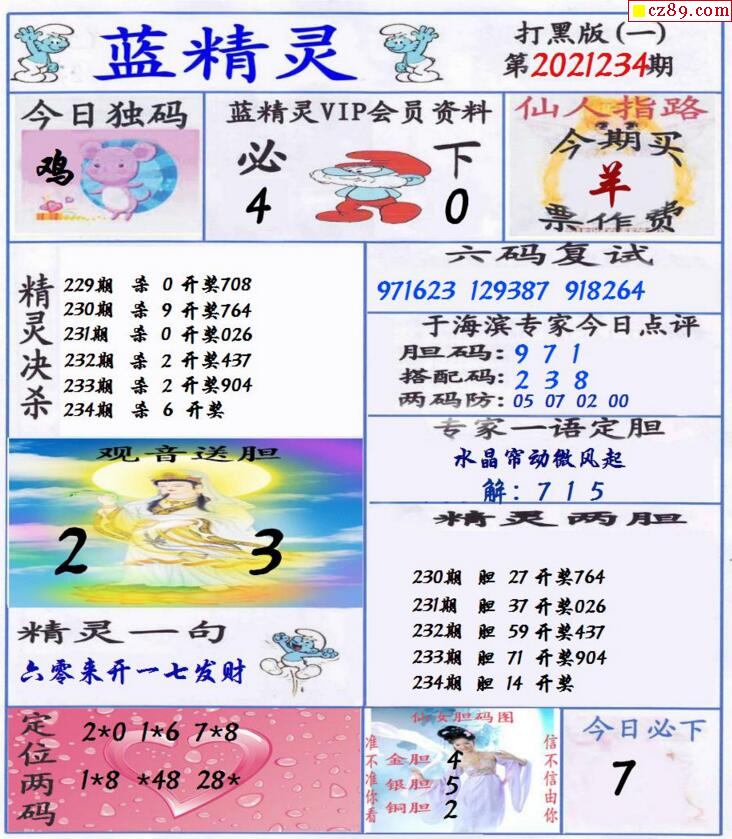 cz89.com
蓝精灵
打黑版(一)
第2021234期
今日独码
鸡
蓝精灵VIP会员资料
必 下
4 0
仙人指路
今期买
羊
票作费
精灵决杀
229期 杀 0 开奖708
230期 杀 9 开奖764
231期 杀 0 开奖026
232期 杀 2 开奖437
233期 杀 2 开奖904
234期 杀 6 开奖
六码复试
971623 129387 918264
于海滨专家今日点评
胆码: 9 7 1
搭配码: 2 3 8
两码防: 05 07 02 00
专家一语定胆
水晶帘动微风起
解: 7 1 5
观音送胆
2 3
精灵两胆
230期 胆 27 开奖764
231期 胆 37 开奖026
232期 胆 59 开奖437
233期 胆 71 开奖904
234期 胆 14 开奖
精灵一句
六零来开一七发财
定位两码
2*0 1*6 7*8
1*8 *48 28*
仙女胆码图
准不准你看
金胆 4
银胆 5
铜胆 2
信不信由你
今日必下
7